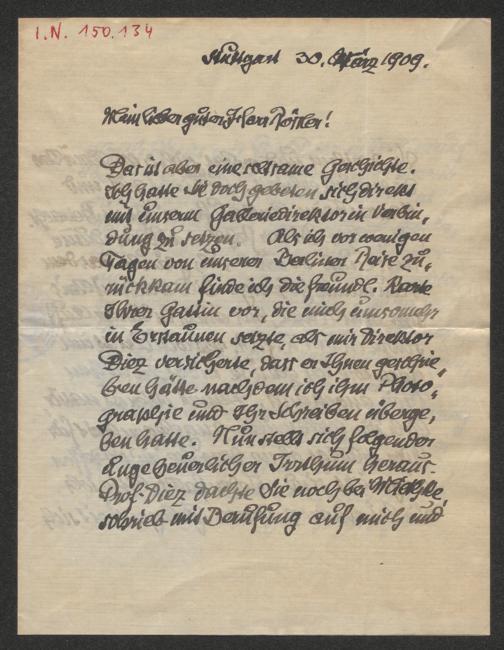 I.N. 150.134
Stuttgart 30. März 1909.
Mein lieber guter Herr Rössler!
Das ist aber eine seltsame Geschichte.
Ich hatte Sie doch gebeten, sich direkt
mit unserm Galleriedirektor in Verbin,
dung zu setzen. Als ich vor wenigen
Tagen von unserer Berliner Reise zu,
rückkam finde ich die freundl. Karte
Ihrer Gattin vor, die mich umsomehr
in Erstaunen setzte, als mir Direktor
Diez versicherte, dass er Ihnen geschrie,
ben hätte nachdem ich ihm Photo,
graphie und Ihr Schreiben überge,
ben hatte. Nun stellt sich folgender
ungeheuerlicher Irrthum heraus.
Prof. Diez dachte Sie noch bei Miethke,
schrieb mit Berufung auf mich und